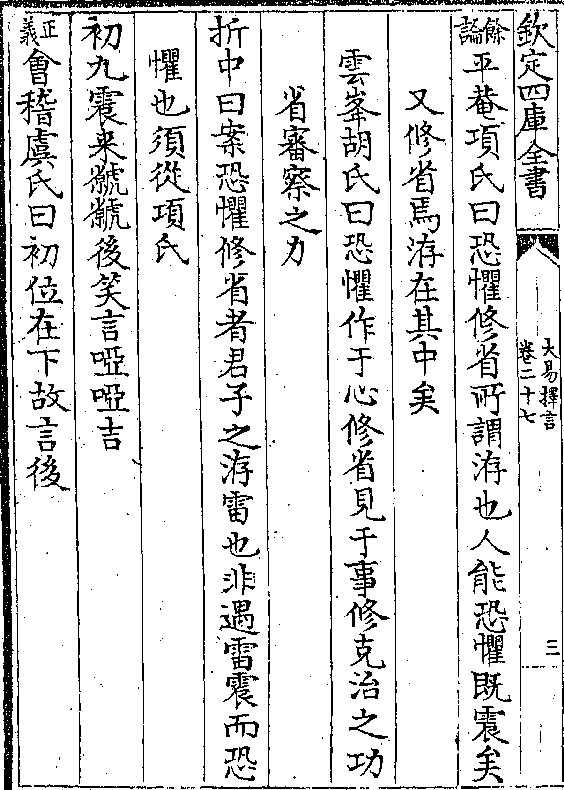 欽定四庫全書
大易擇言
卷二十七
三
餘論平菴項氏曰恐懼修省所謂洊也人能恐懼既震矣
又修省焉洊在其中矣
雲峯胡氏曰恐懼作于心修省見于事修克治之功
省審察之力
折中曰案恐懼修省者君子之洊雷也非遇雷震而恐
懼也須從項氏
初九震来虩虩後笑言啞啞吉
正義會稽虞氏曰初位在下故言後